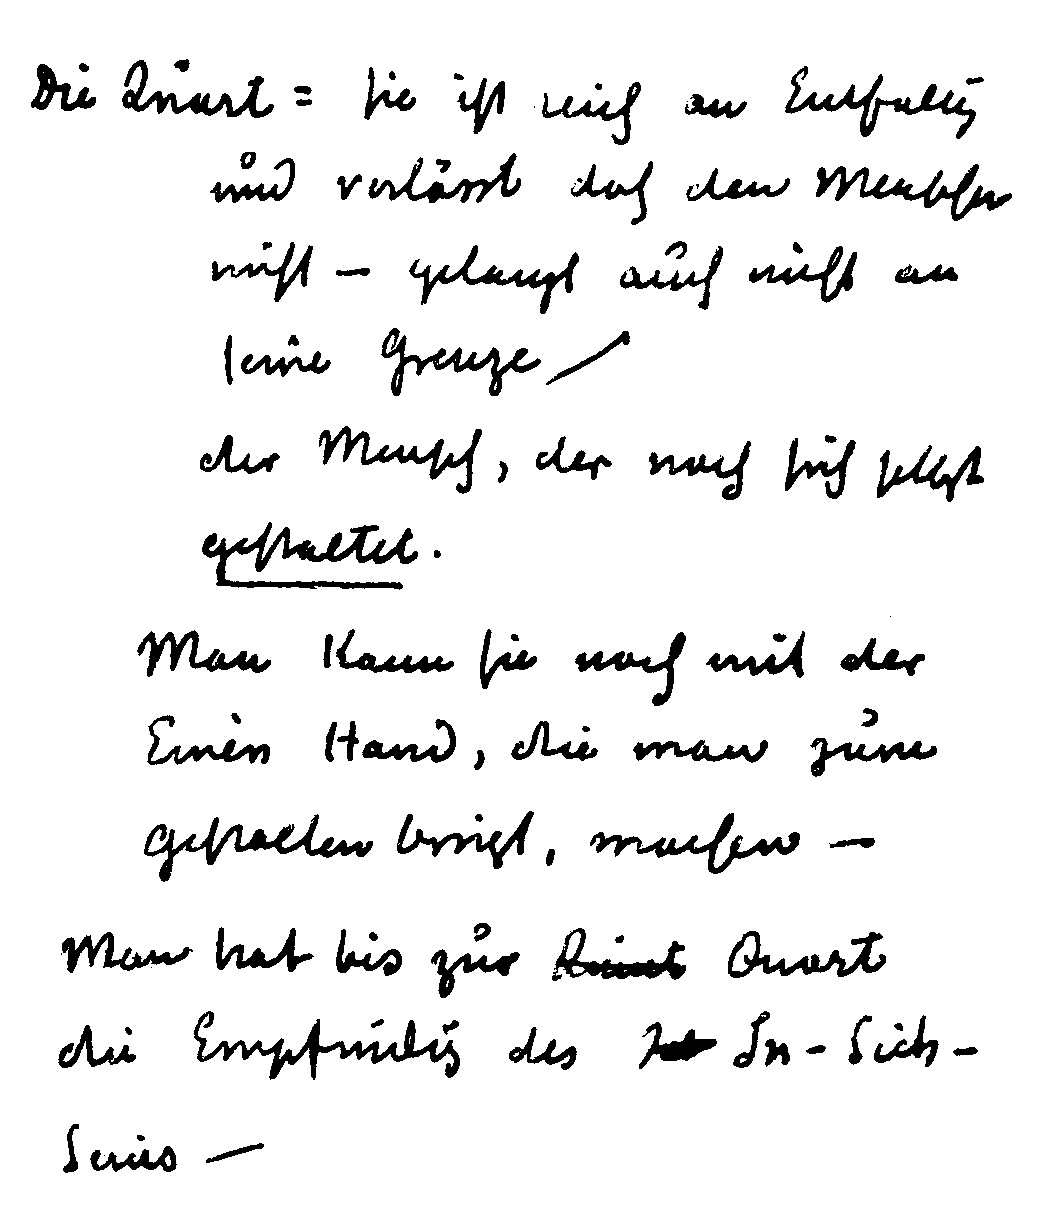 Die Quart = sie ist reich an Entfaltg
und verlässt doch den Menschen
nicht – gelangt auch nicht an
seine Grenze /
der Mensch, der noch sich selbst
gestaltet.
Man kann sie noch mit der
Einen Hand, die man zum
gestalten bringt, machen –
Man hat bis zur Quint Quart
die Empfindg des In-Sich-
Seins –